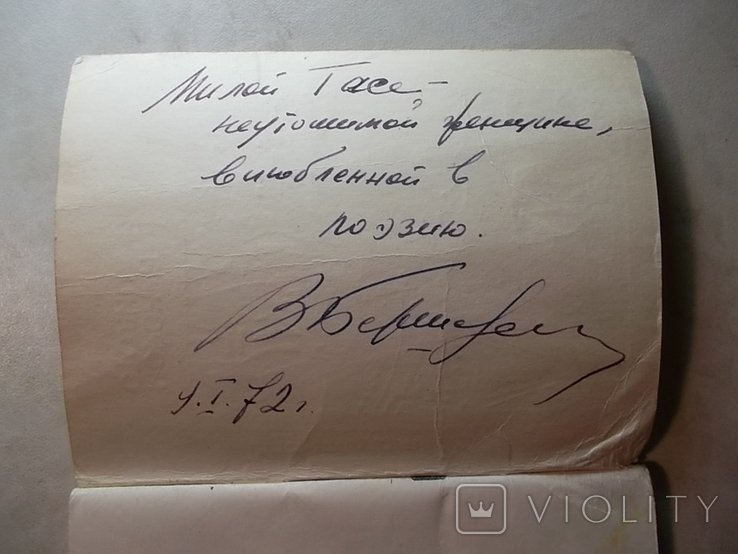 Милой Тасе –
неутомимой женщине,
влюбленной в
поэзию.
9.I.72г.
VIOLITY